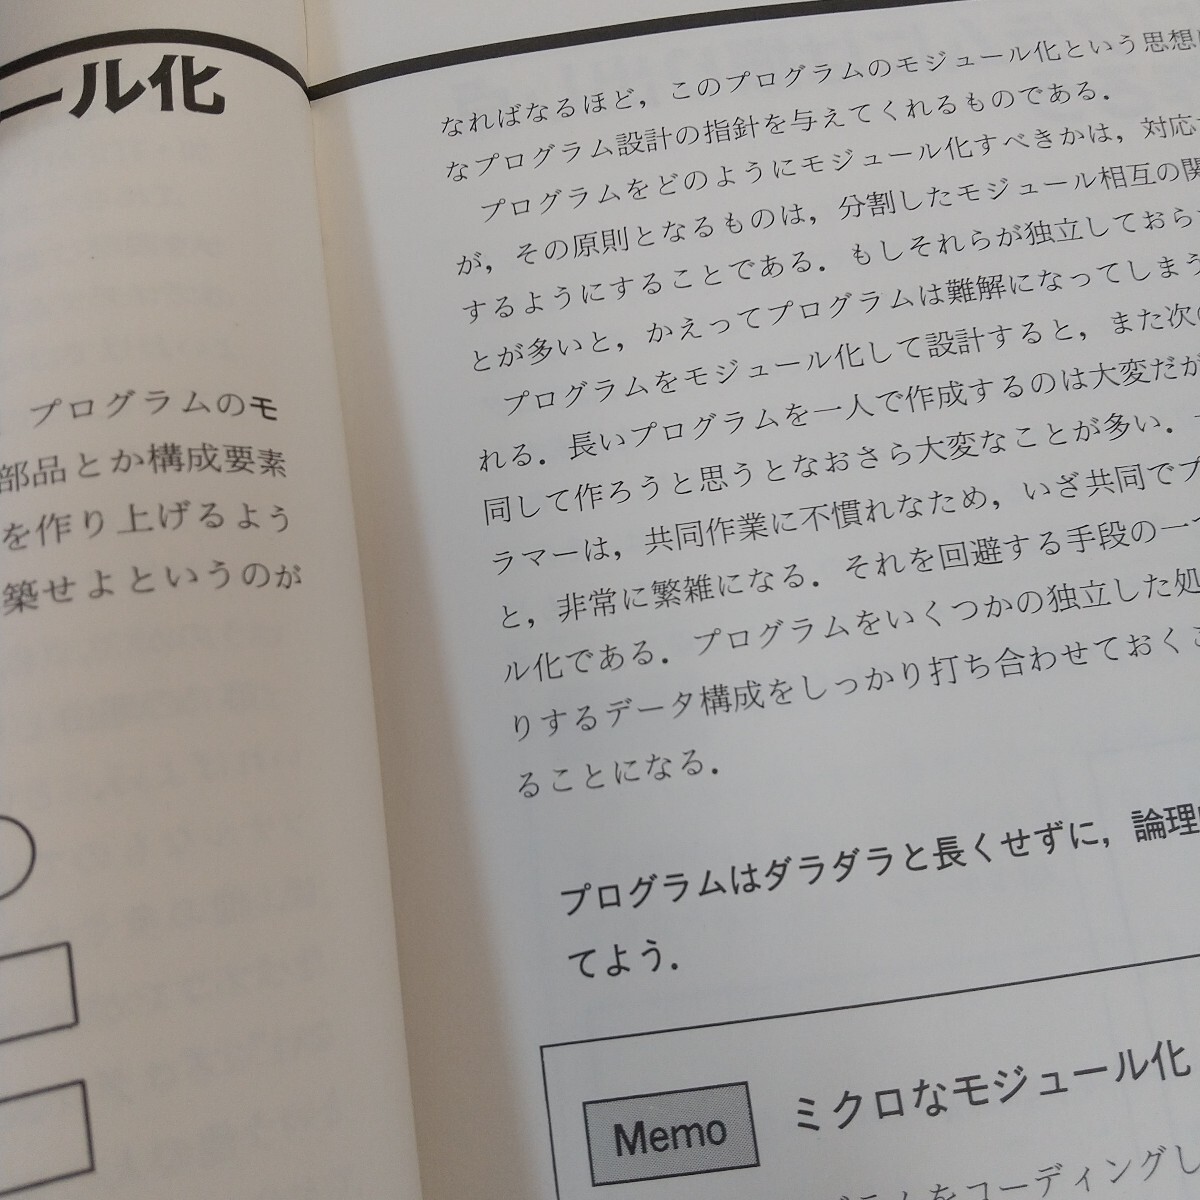 ール化
プログラムのモ
部品とか構成要素
を作り上げるよう
築せよというのが
なればなるほど，このプログラムのモジュール化という思想
なプログラム設計の指針を与えてくれるものである．
プログラムをどのようにモジュール化すべきかは，対応
が，その原則となるものは，分割したモジュール相互の関
するようにすることである．もしそれらが独立しておら
とが多いと，かえってプログラムは難解になってしまう
プログラムをモジュール化して設計すると，また次の
れる．長いプログラムを一人で作成するのは大変だが
同して作ろうと思うとなおさら大変なことが多い．
ラマーは，共同作業に不慣れなため，いざ共同でプ
と，非常に繁雑になる．それを回避する手段の一
ル化である．プログラムをいくつかの独立した処
りするデータ構成をしっかり打ち合わせておくこ
ることになる．
プログラムはダラダラと長くせずに，論理
てよう．
Memo
ミクロなモジュール化
ラムをコーディングし